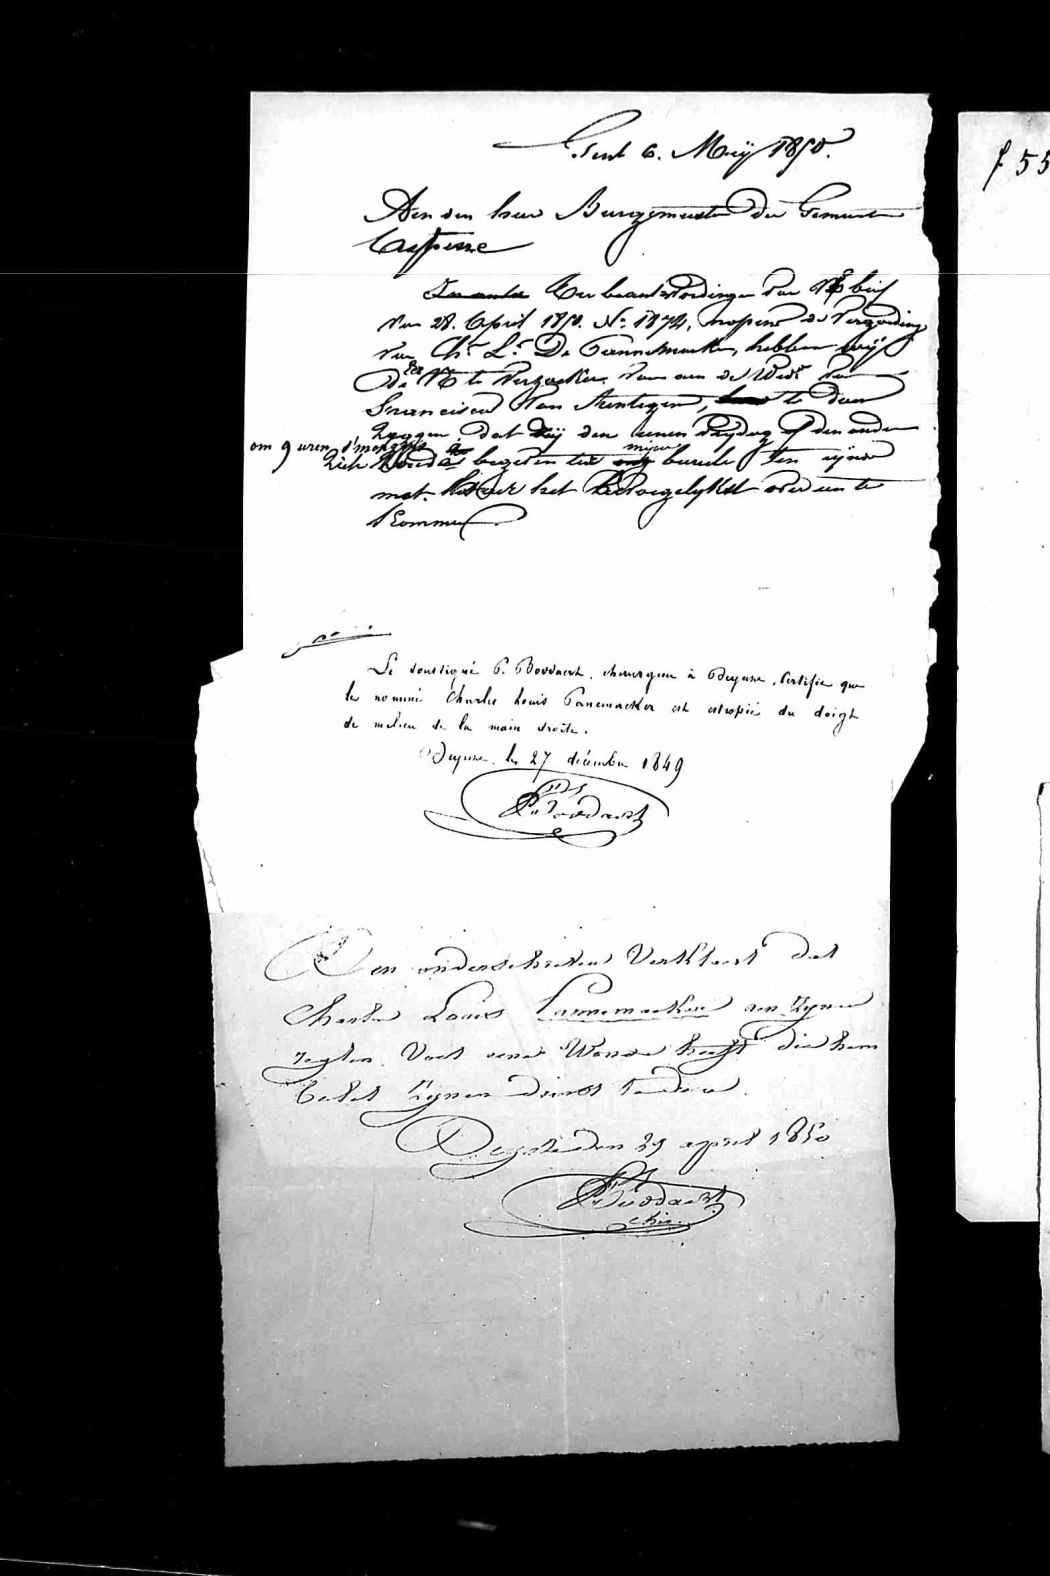 Gent 6. Meij 1850.
Aen den heer Burgemeester der Gemeente
Ter beantwoordinge van Ue brief
van 28. April 1850. No. 1874, nopens de vergoeding
van Chs. Ls. De Pannemaeker, hebben wij
de Ue te verzoeken van aen de Wede van
Franciscus Van Renterghem, te doen
zeggen dat zij den eenen vrijdag of den anderen
om 9 uren s'morgens
mijne
zich begeven tot bureele ten eynde
met haer het over een te
komen
Le soussigné P. Boddaert, chirurgien à Deynze, certifie que
le nommé Charles Louis Panemaeker est estropié du doigt
de milieu de la main droite.
Deynze, le 27 décembre 1849
P. Boddaert
Den onderschreven verklaert dat
Charles Louis Pannemaeker aen zynen
regten voet eene wonde heeft die hem
belet zynen dienst te doen.
Deynze den 29 april 1850
P. Boddaert
chir.
f 55